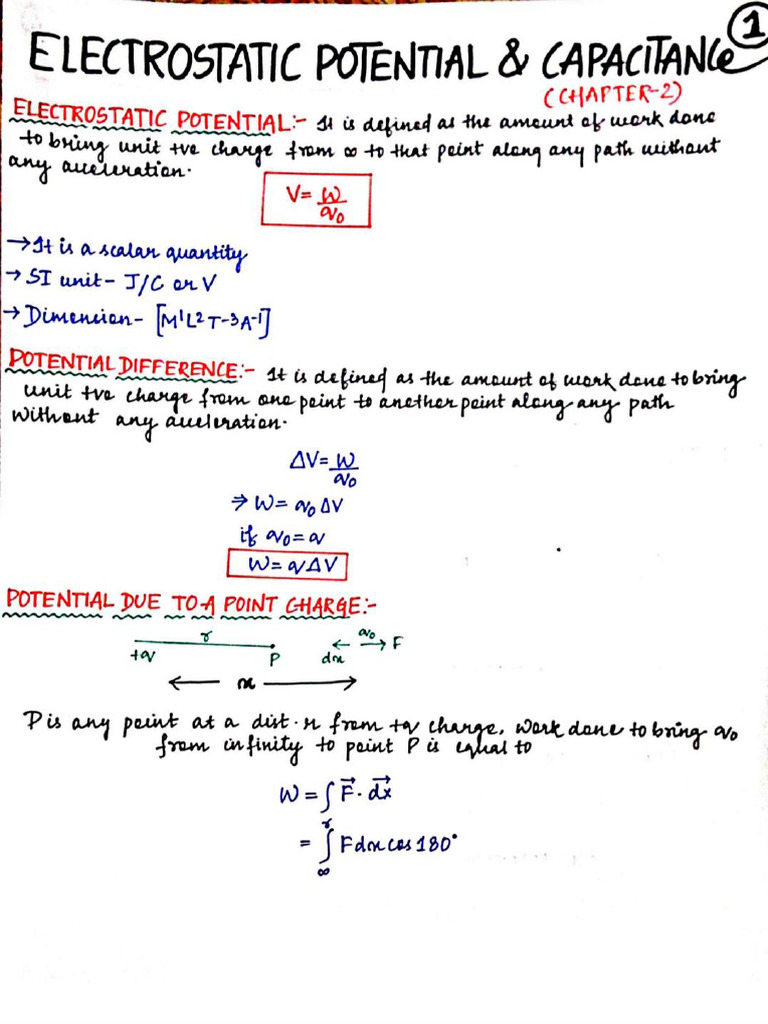 1
ELECTROSTATIC POTENTIAL & CAPACITANCE
(CHAPTER-2)
ELECTROSTATIC POTENTIAL:- It is defined as the amount of work done
to bring unit +ve charge from ∞ to that point along any path without
any acceleration.
V = W/q₀
→ It is a scalar quantity
→ SI unit - J/C or V
→ Dimension - [M¹L²T⁻³A⁻¹]
POTENTIAL DIFFERENCE:- It is defined as the amount of work done to bring
unit +ve charge from one point to another point along any path
without any acceleration.
ΔV = W/q₀
⇒ W = q₀ΔV
if q₀ = q
W = qΔV
POTENTIAL DUE TO A POINT CHARGE:-
r q₀
+q P dx F
x
P is any point at a dist. r from +q charge. Work done to bring q₀
from infinity to point P is equal to
W = ∫F⃗.dx⃗
= ∫∞^r Fdx cos180°